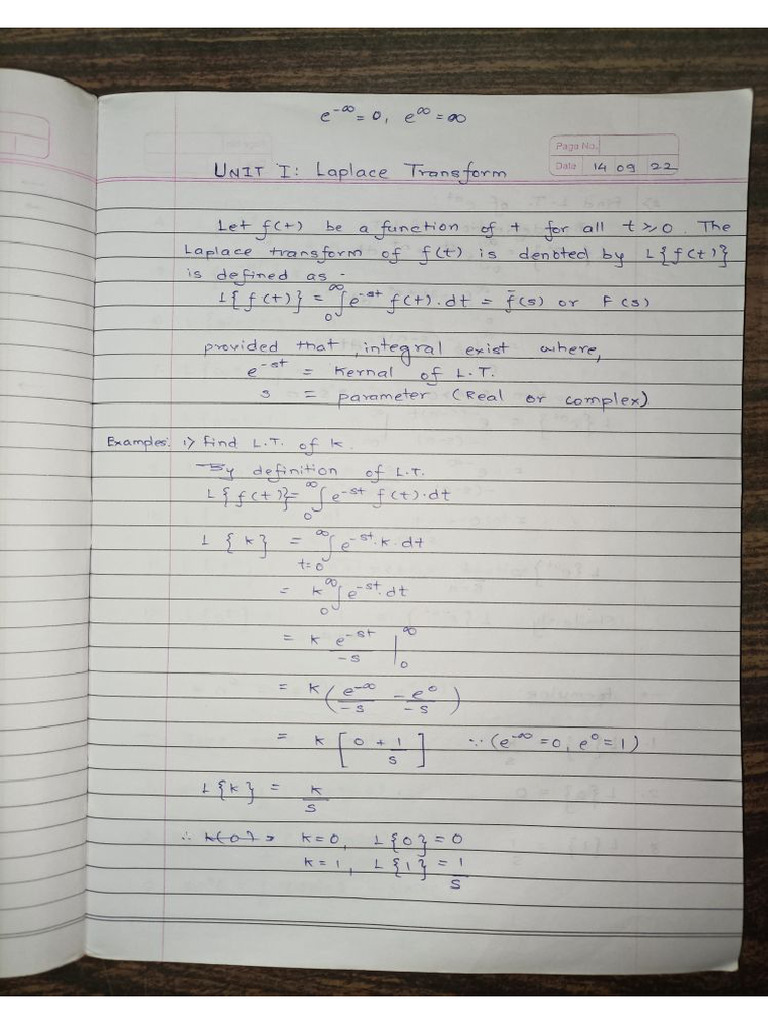 e^-∞ = 0, e^∞ = ∞
Page No.
Date 14 09 22
UNIT I: Laplace Transform
Let f(t) be a function of t for all t ≥ 0. The
Laplace transform of f(t) is denoted by L{f(t)}
is defined as -
L{f(t)} = ∫₀^∞ e^-st f(t).dt = f̄(s) or F(s)
provided that, integral exist where,
e^-st = Kernal of L.T.
s = parameter (Real or complex)
Examples: 1> Find L.T. of k.
By definition of L.T.
L{f(t)} = ∫₀^∞ e^-st f(t).dt
L{k} = ∫_{t=0}^∞ e^-st.k.dt
= k ∫₀^∞ e^-st.dt
= k e^-st/-s |₀^∞
= k(e^-∞/-s - e^0/-s)
= k[0 + 1/s] ∵ (e^-∞ = 0, e^0 = 1)
L{k} = k/s
∴ k=0, L{0} = 0
k=1, L{1} = 1/s